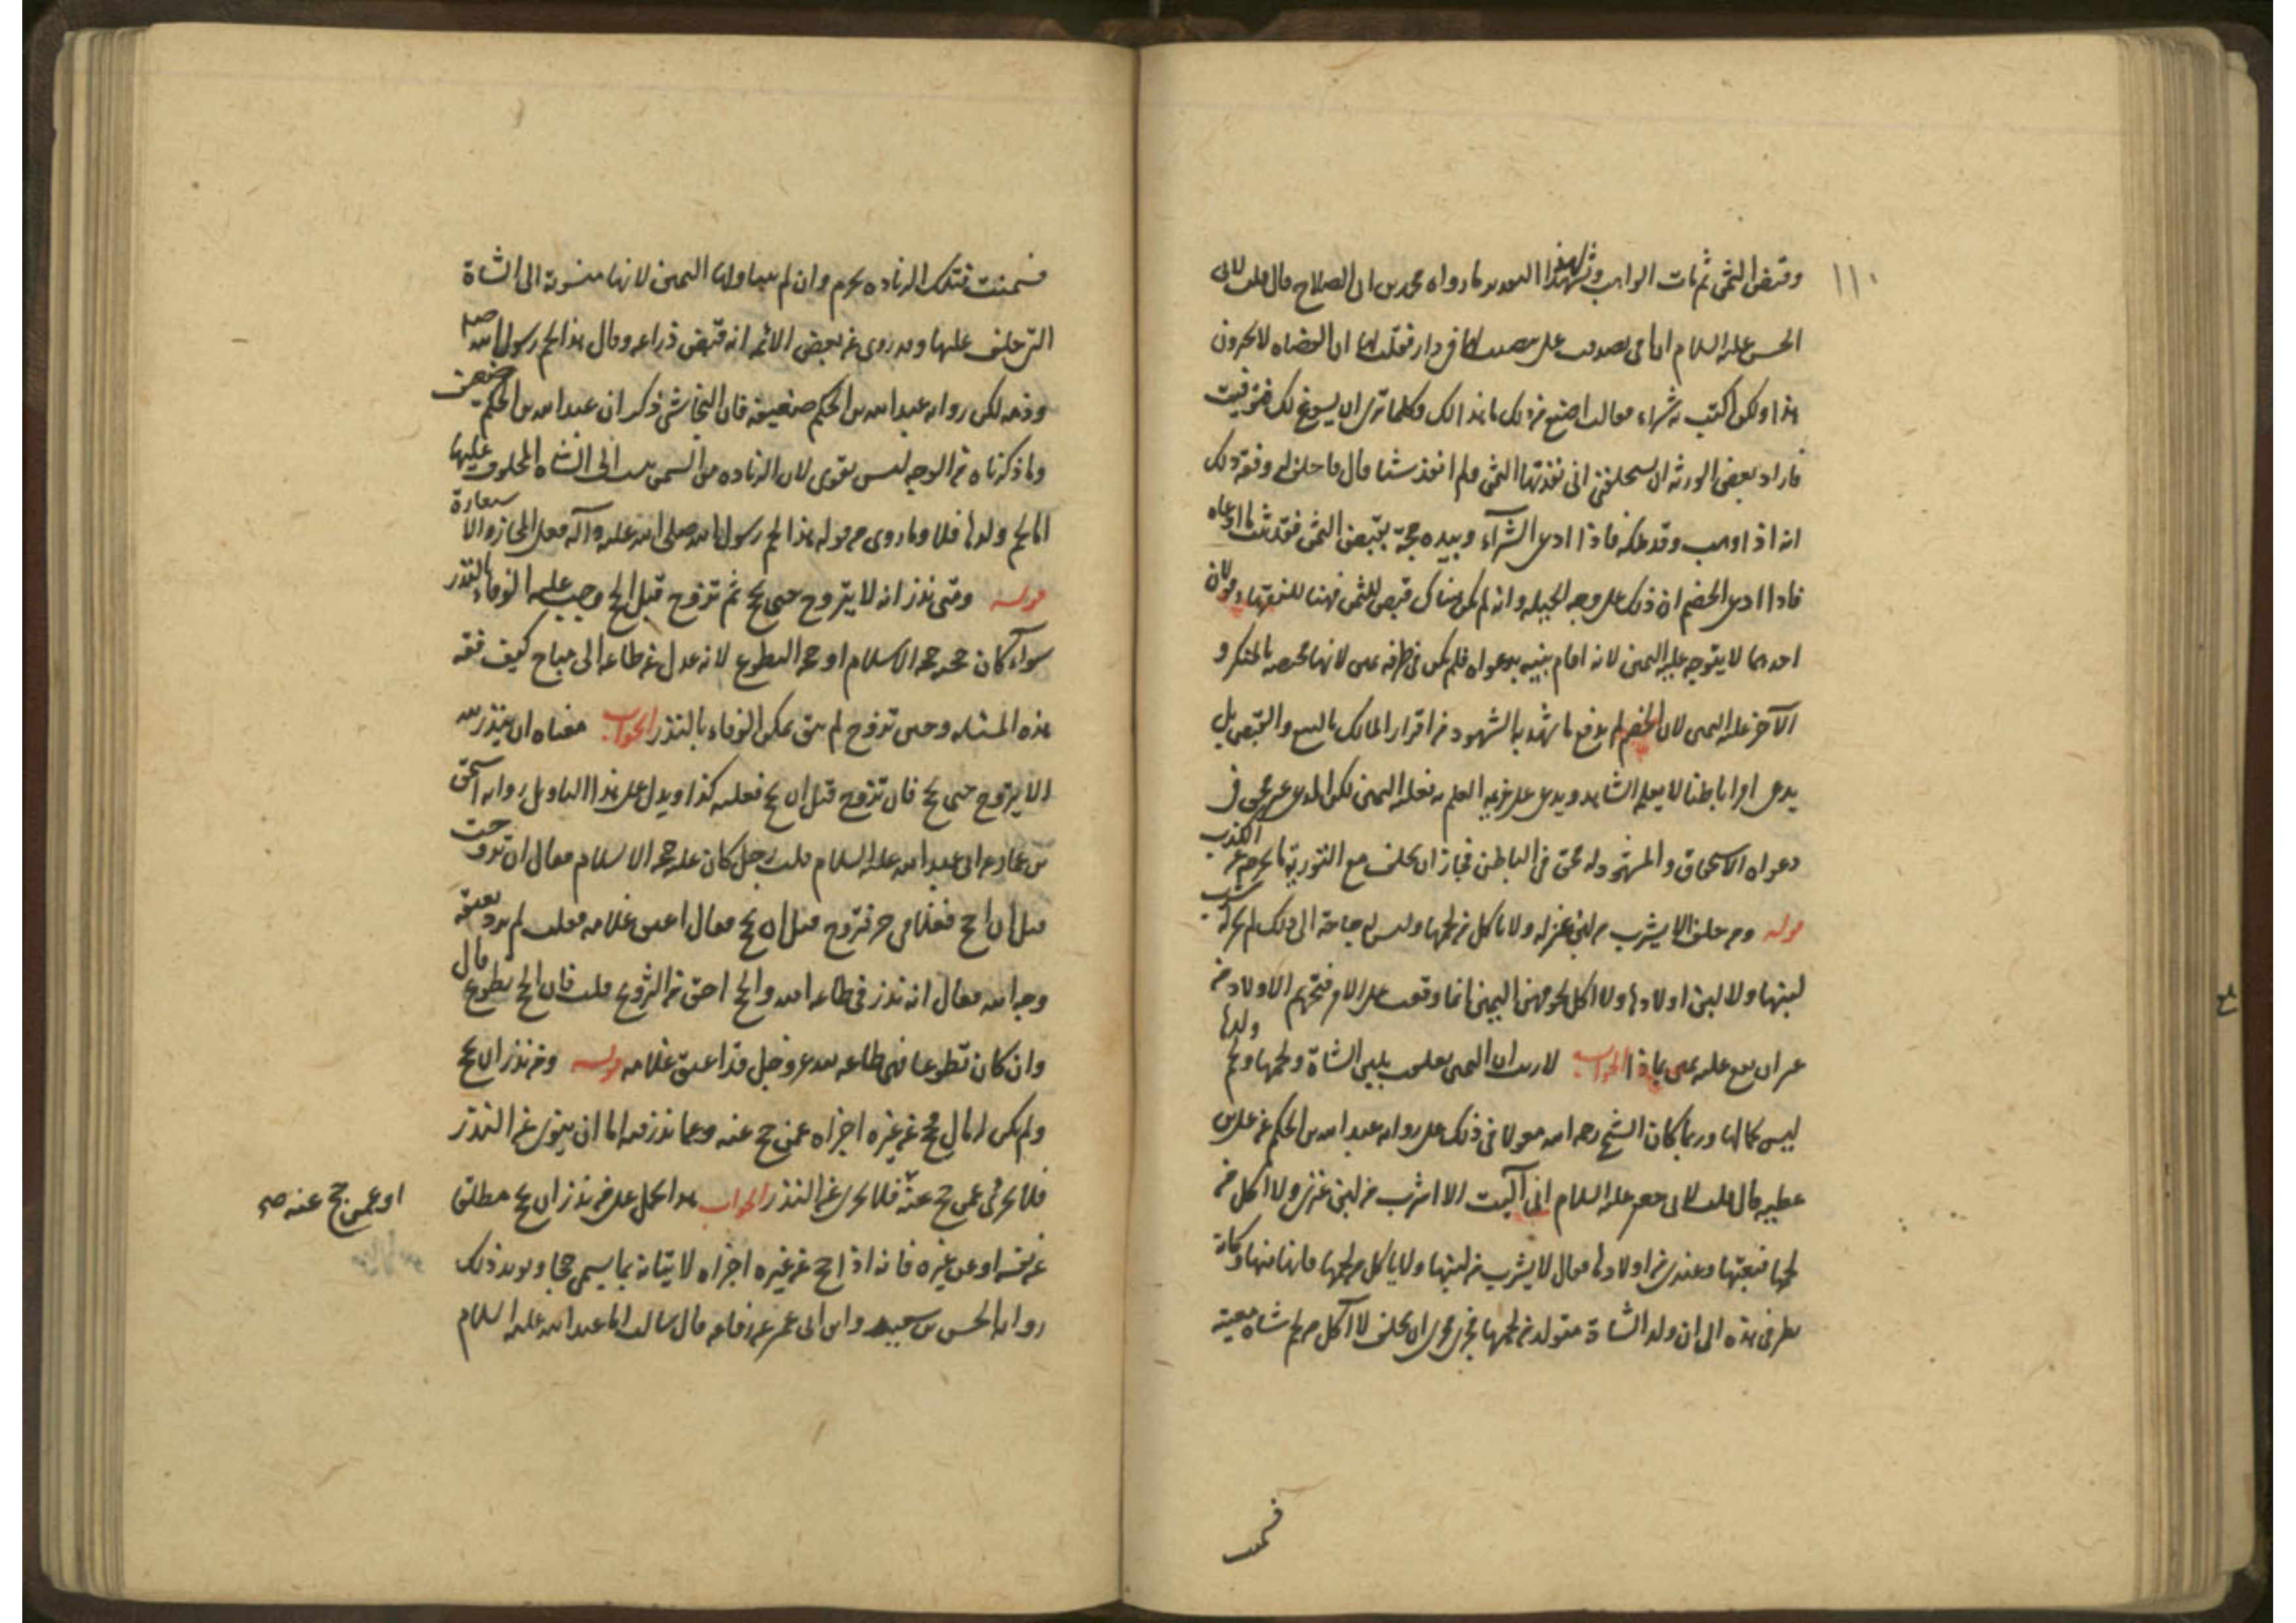 ١١٠
وقبض الثمن ثم مات الواهب وشهد لهذا التقدير ما رواه محمد بن ابى الصلاح قال قلت لابى
الحسن عليه السلام ان امى تصدقت على بنصيب لها فى دار فقلت لها ان القضاة لا يجيزون
هذا ولكن اكتبيه شراء فقالت اصنع من ذلك ما بدا لك وكلما ترى ان يسوغ لك فتوثقت
فاراد بعض الورثة ان يستحلفنى انى نقدتها الثمن ولم انقدها شيئا قال فاحلف له وفقه ذلك
انه اذا وهب وقد ملكه فاذا ادعى الشرآء وبيده حجة بقبض الثمن فقد ثبت ما ادعاه
فاذا ادعى الخصم ان ذلك على وجه الحيلة وانه لم يكن هناك قبض للثمن فهنا للفقهاء قولان
احدهما لا يتوجه عليه اليمين لانه اقام بينة بدعواه فلم يكن فى طرفه يمين لانها مختصة بالمنكر و
الآخر عليه اليمين لان الخصم لم يدفع ما شهد به الشهود من اقرار المالك بالبيع والقبض بل
يدعى امرا باطنا لا يعلمه الشاهد ويدعى على غريمه العلم به فعليه اليمين لكن المدعى غير محق فى
دعواه الاستحقاق والمشهود له محق فى الباطن فجاز ان يحلف مع التورية ما يخرجه عن الكذب
قوله ومن حلف الا يشرب من لبن عنز له ولا ياكل من لحمها وليس له حاجة الى ذلك لم يجز له شرب
لبنها ولا لبن اولادها ولا اكل لحومهن اليمين انما وقعت على الام فتحريم الاولاد من
غير ان يقع عليه يمين بماذا الجواب لا ريب ان اليمين تعلقت بلبن الشاة ولحمها ولحم ولدها
ليس كمالها وربما كان الشيخ رحمه الله معولا فى ذلك على رواية عبد الله بن الحكم عن على بن
عطيه قال قلت لابى جعفر عليه السلام انى آليت الا اشرب من لبن عنزى ولا اكل من
لحمها فبعتها وعندى من اولادها فقال لا يشرب من لبنها ولا ياكل من لحمها فانها منها وكانه
نظر فى هذه الى ان ولد الشاة متولد من لحمها فجرى مجرى ان يحلف لا آكل من لحم شاة معينة
فسمنت
فسمنت فتلك الزيادة يحرم وان لم يتناولها اليمين لانها منسوبة الى الشاة
التى حلف عليها وقد روى عن بعض الائمه انه قبض ذراعه وقال هذا لحم رسول الله صلم
ودمه لكن رواية عبد الله بن الحكم ضعيفة فان النجاشى ذكر ان عبد الله بن الحكم ضعيف
وما ذكرناه من الوجه ليس بقوى لان الزيادة من السمن نسبت الى الشاة المحلوف عليها
اما لحم ولدها فلا وما روى من قوله هذا لحم رسول الله صلى الله عليه وآله فعلى المجاز والاستعارة
قوله ومتى نذر انه لا يتزوج حتى يحج ثم تزوج قبل الحج وجب عليه الوفاء بالنذر
سواء كان حجه حجة الاسلام او حجة التطوع لانه عدل عن طاعة الى مباح كيف فقه
هذه المسئلة وحتى تزوج لم يبق يمكن الوفاء بالنذر الجواب معناه ان ينذر لله
الا يتزوج حتى يحج فان تزوج قبل ان يحج فعليه كذا ويدل على هذا التاويل رواية اسحق
بن عمار عن ابى عبد الله عليه السلام قلت رجل كان عليه حجة الاسلام فقال ان تزوجت
قبل ان احج فغلامى حر فتزوج قبل ان يحج فقال اعتق غلامه فقلت لم يرد بعتقه
وجه الله فقال انه نذر فى طاعة الله والحج احق من التزويج قلت فان الحج تطوع قال
وان كان تطوعا فهى طاعة لله عز وجل قد اعتق غلامه قوله ومن نذر ان يحج
ولم يكن له مال فحج عن غيره اجزاه عمن حج عنه وعما نذر فيه اما ان ينوى عن النذر
فلا يجزى عمن حج عنه فلا يجزى عن النذر الجواب هذا يحمل على من نذر ان يحج مطلقا
او عمن حج عنه صح
عن نفسه او عن غيره فانه اذا حج عن غيره اجزاه لاتيانه بما يسمى حجا ويؤيد ذلك
رواية الحسين بن سعيد وابن ابى عمير عن رفاعة قال سالت ابا عبد الله عليه السلام